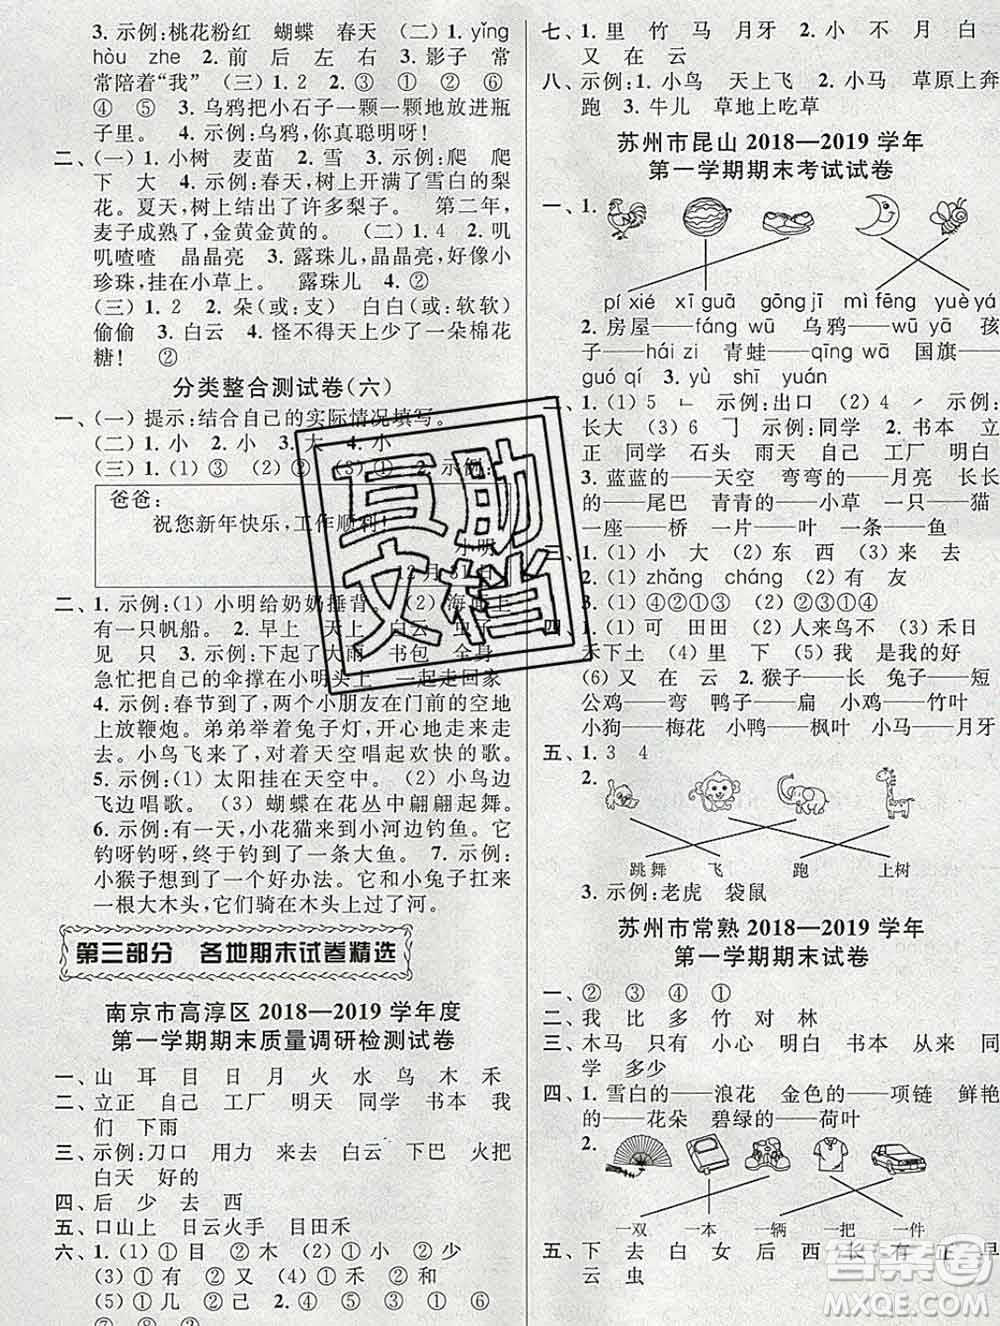 3. 示例:桃花粉红　蝴蝶　春天　(二)1. yǐng
hòu　zhe　2. 前　后　左　右　3. 影子　常
常陪着“我”　(三)1. 2　2. ③　①　②　⑥
④　⑤　3. 乌鸦把小石子一颗一颗地放进瓶
子里。　4. 示例:乌鸦,你真聪明呀!
二、(一)1. 小树　麦苗　2. 雪　3. 示例:爬　爬
下　大　4. 示例:春天,树上开满了雪白的梨
花。夏天,树上结出了许多梨子。　第二年,
麦子成熟了,金黄金黄的。　(二)1. 4　2. 叽
叽喳喳　晶晶亮　3. 露珠儿,晶晶亮,好像小
珍珠,挂在小草上。　露珠儿　4. ②
(三)1. 2　2. 朵(或:支)　白白(或:软软)
偷偷　3. 白云　4. 怪不得天上少了一朵棉花
糖!　②
分类整合测试卷(六)
一、(一)提示:结合自己的实际情况填写。
(二)1. 小　2. 小　3. 大　4. 小
(三)1. (1)③　(2)②　(3)①　2. 示例:
爸爸:
祝您新年快乐,工作顺利!
小明
月 31 日
二、1. 示例:(1)小明给奶奶捶背。　(2)海面上
有一只帆船。　2. 早上　大　白云　虫子
见　只　3. 示例:下起了大雨　书包　全身
急忙把自己的伞撑在小明头上　走回家
4. 示例:春节到了,两个小朋友在门前的空地
上放鞭炮。弟弟举着兔子灯,开心地走来走
去。小鸟飞来了,对着天空唱起欢快的歌。
5. 示例:(1)太阳挂在天空中。　(2)小鸟边
飞边唱歌。　(3)蝴蝶在花丛中翩翩起舞。
6. 示例:有一天,小花猫来到小河边钓鱼。它
钓呀钓呀,终于钓到了一条大鱼。　7. 示例:
小猴子想到了一个好办法。它和小兔子扛来
一根大木头,它们骑在木头上过了河。
第三部分　各地期末试卷精选
南京市高淳区 2018—2019 学年度
第一学期期末质量调研检测试卷
一、山　耳　目　日　月　火　水　鸟　木　禾
二、立正　自己　工厂　明天　同学　书本　我
们　下雨
三、示例:刀口　用力　来去　白云　下巴　火把
白天　好的
四、后　少　去　西
五、口山上　日云火手　目田禾
六、1. (1)①目　②木　(2)①多　②少
(3)①有　②在　(4)①子　②和
(5)①几　②己　2. ④　⑤　③　①　②　⑥
⑦　⑧　⑨
七、1. 里　竹　马　月牙　2. 小　不　月　白
又　在　云
八、示例:1. 小鸟　天上飞　2. 小马　草原上奔
跑　3. 牛儿　草地上吃草
苏州市昆山 2018—2019 学年
第一学期期末考试试卷
一、1.
pí xié　xī guā　gōng jī　mì fēng　yuè yá
2. 房屋——fáng wū　乌鸦——wū yā　孩
子——hái zi　青蛙——qīng wā　国旗——
guó qí　3. yù　shī　yuán
二、1. (1)5　㇗　示例:出口　(2)4　㇒　示例:
长大　(3)6　㇆　示例:同学　2. 书本　立
正　同学　石头　雨天　自己　工厂　明白
3. 蓝蓝的——天空　弯弯的——月亮　长长
的——尾巴　青青的——小草　4. 一只——
一座——桥　一片——叶　一条——鱼
三、1. (1)小　大　(2)东　西　(3)来　去
2. (1)zhǎng　cháng　(2)有　友
3. (1)④②①③　(2)②③①④
四、1. (1)可　田田　(2)人来鸟不　(3)禾日
禾下土　(4)里　下　(5)我　是我的好
(6)又　在　云　2. 猴子——长　兔子——短
公鸡——弯　鸭子——扁　小鸡——竹叶
小狗——梅花　小鸭——枫叶　小马——月牙
五、1. 3　4
2.
跳舞　飞　跑　上树
3. 示例:老虎　袋鼠
苏州市常熟 2018—2019 学年
第一学期期末试卷
一、②　③　④　①
二、我　比　多　竹　对　林
三、木马　只有　小心　明白　书本　从来　同
学　多少
四、1. 雪白的——浪花　金色的——项链　鲜艳
的——花朵　碧绿的——荷叶
2.
一双　一本　一辆　一把　一件
五、下　去　白　女　后　西　长　有　正　早
云　虫
互助
文档
答案圈
MXQE.COM